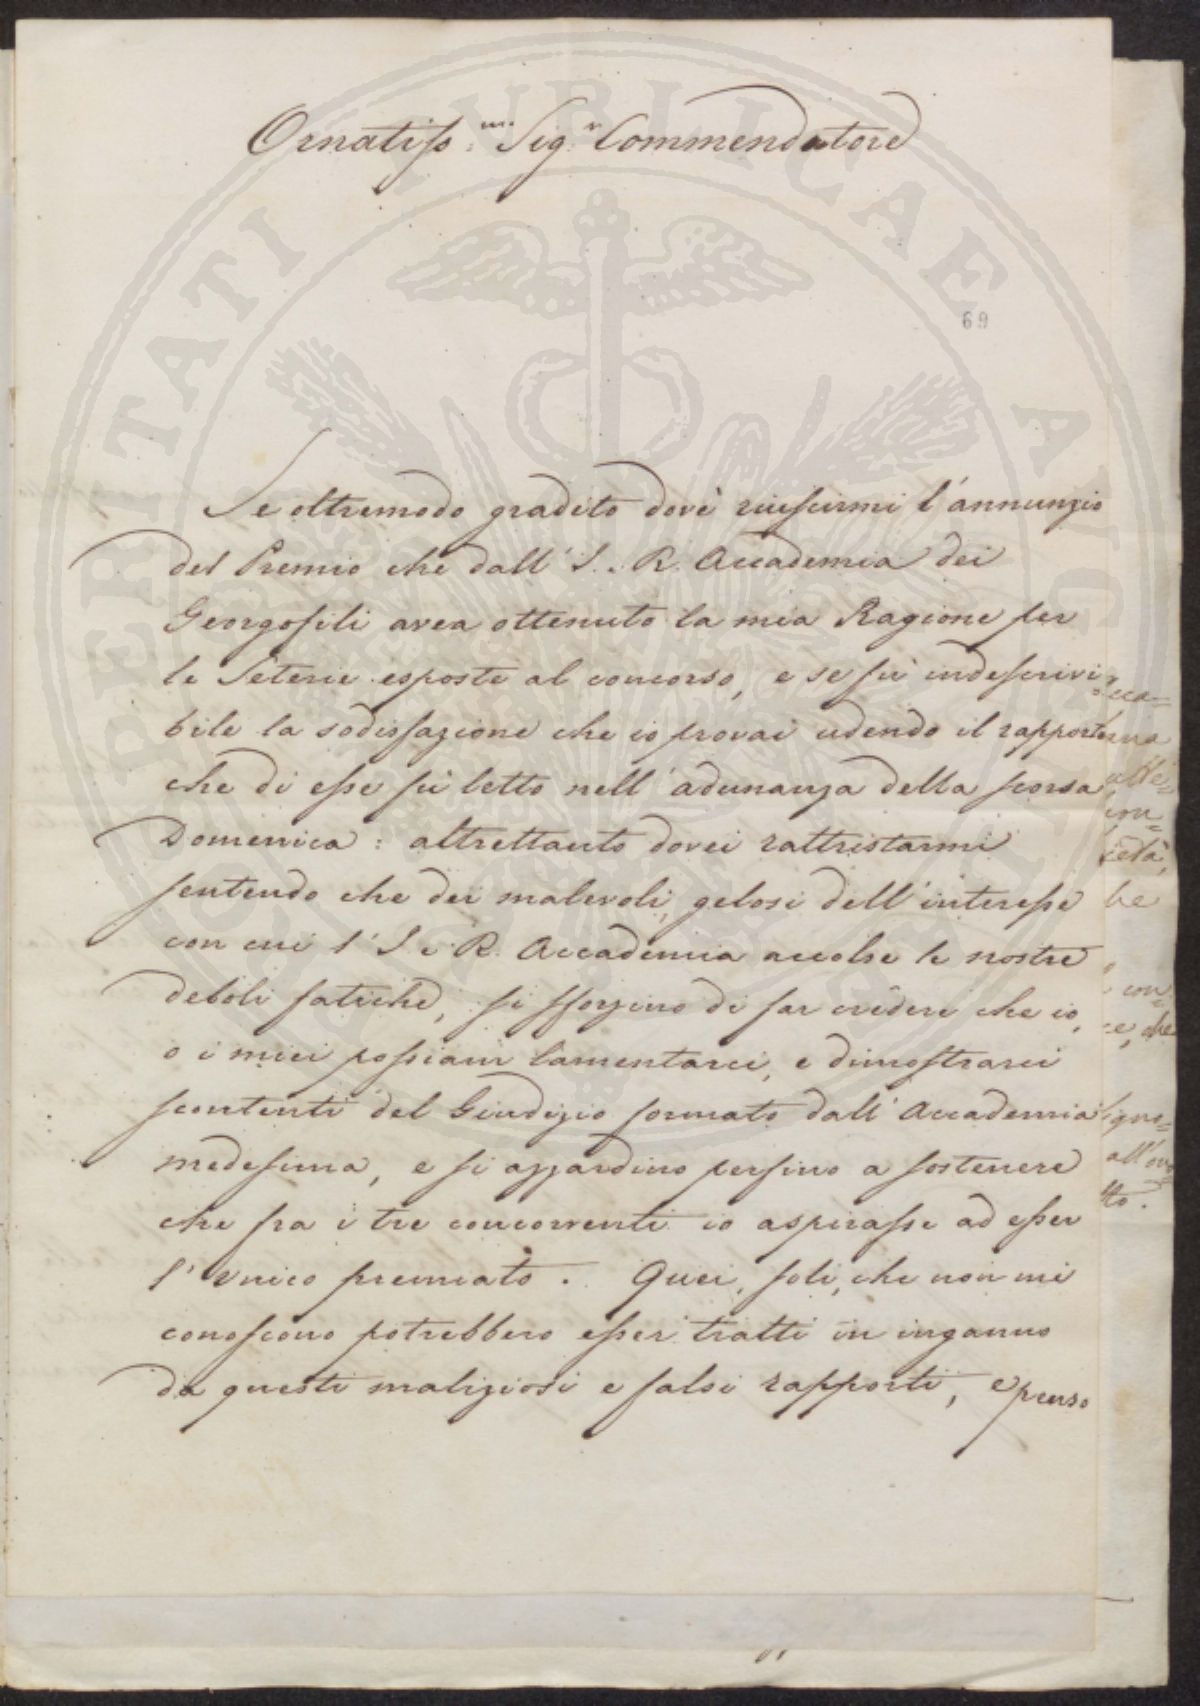 Ornatiss.mo Sig.r Commendatore
69
Se oltremodo gradito dovè riuscirmi l'annunzio
del Premio che dall' I. e R. Accademia dei
Georgofili avea ottenuto la mia Ragione per
le Seterie esposte al concorso, e se fù indescrivi=
bile la sodisfazione che io provai udendo il rapporto
che di esse fù letto nell'adunanza della scorsa
Domenica: altrettanto dovei rattristarmi
sentendo che dei malevoli, gelosi dell'interesse
con cui l'I. e R. Accademia accolse le nostre
deboli fatiche, si sforzino di far credere che io,
o i miei possiam lamentarci, e dimostrarci
scontenti del Giudizio formato dall'Accademia
medesima, e si azzardino persino a sostenere
che fra i tre concorrenti io aspirasse ad esser
l'unico premiato. Quei, soli, che non mi
conoscono potrebbero esser tratti in inganno
da questi maliziosi e falsi rapporti, e penso